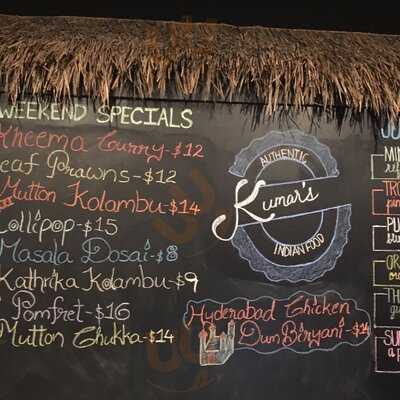 WEEKEND SPECIALS
Kheema Curry-$12
eaf Prawns-$12
Mutton Kolambu-$14
Lollipop-$15
Masala Dosai-$8
Kathrika Kolambu-$9
Pomfret-$16
Mutton Chukka-$14
AUTHENTIC
Kumar's
INDIAN FOOD
Hyderabad Chicken
Dum Biryani-$14